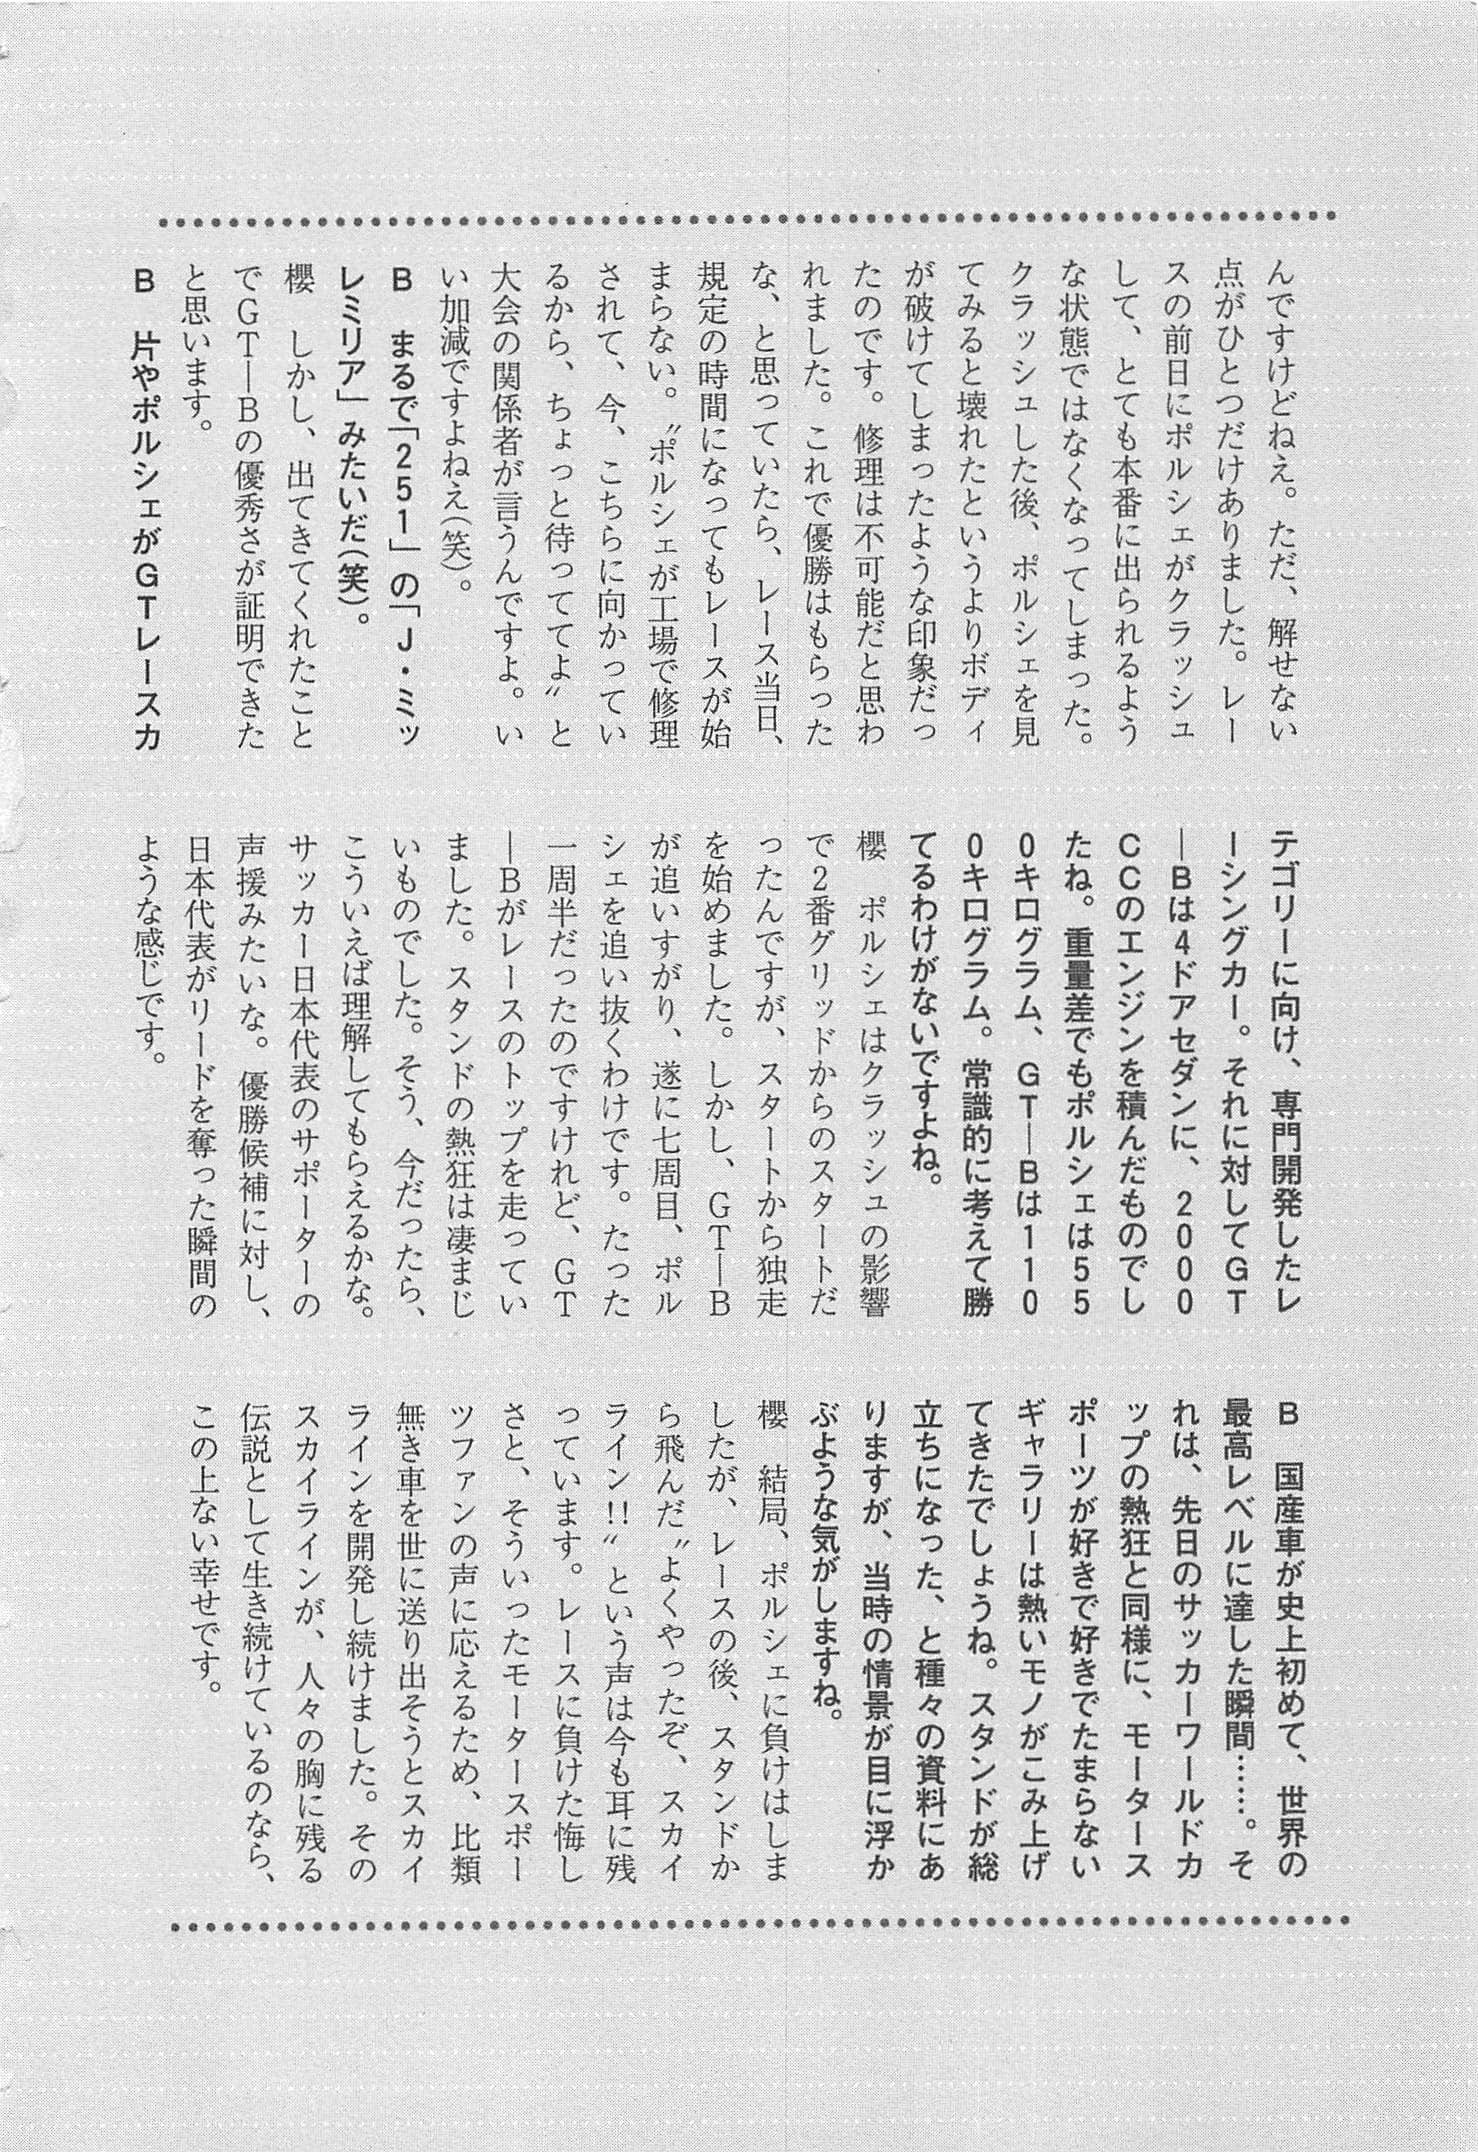 んですけどねえ。ただ、解せない
点がひとつだけありました。レー
スの前日にポルシェがクラッシュ
して、とても本番に出られるよう
な状態ではなくなってしまった。
クラッシュした後、ポルシェを見
てみると壊れたというよりボディ
が破けてしまったような印象だっ
たのです。修理は不可能だと思わ
れました。これで優勝はもらった
な、と思っていたら、レース当日、
規定の時間になってもレースが始
まらない。〝ポルシェが工場で修理
されて、今、こちらに向かってい
るから、ちょっと待っててよ〟と
大会の関係者が言うんですよ。い
い加減ですよねえ(笑)。
B　まるで「251」の「J・ミッ
レミリア」みたいだ(笑)。
櫻　しかし、出てきてくれたこと
でGT―Bの優秀さが証明できた
と思います。
B　片やポルシェがGTレースカ
テゴリーに向け、専門開発したレ
ーシングカー。それに対してGT
―Bは4ドアセダンに、2000
CCのエンジンを積んだものでし
たね。重量差でもポルシェは55
0キログラム、GT―Bは110
0キログラム。常識的に考えて勝
てるわけがないですよね。
櫻　ポルシェはクラッシュの影響
で2番グリッドからのスタートだ
ったんですが、スタートから独走
を始めました。しかし、GT―B
が追いすがり、遂に七周目、ポル
シェを追い抜くわけです。たった
一周半だったのですけれど、GT
―Bがレースのトップを走ってい
ました。スタンドの熱狂は凄まじ
いものでした。そう、今だったら、
こういえば理解してもらえるかな。
サッカー日本代表のサポーターの
声援みたいな。優勝候補に対し、
日本代表がリードを奪った瞬間の
ような感じです。
B　国産車が史上初めて、世界の
最高レベルに達した瞬間……。そ
れは、先日のサッカーワールドカ
ップの熱狂と同様に、モータース
ポーツが好きで好きでたまらない
ギャラリーは熱いモノがこみ上げ
てきたでしょうね。スタンドが総
立ちになった、と種々の資料にあ
りますが、当時の情景が目に浮か
ぶような気がしますね。
櫻　結局、ポルシェに負けはしま
したが、レースの後、スタンドか
ら飛んだ〝よくやったぞ、スカイ
ライン!!〟という声は今も耳に残
っています。レースに負けた悔し
さと、そういったモータースポー
ツファンの声に応えるため、比類
無き車を世に送り出そうとスカイ
ラインを開発し続けました。その
スカイラインが、人々の胸に残る
伝説として生き続けているのなら、
この上ない幸せです。